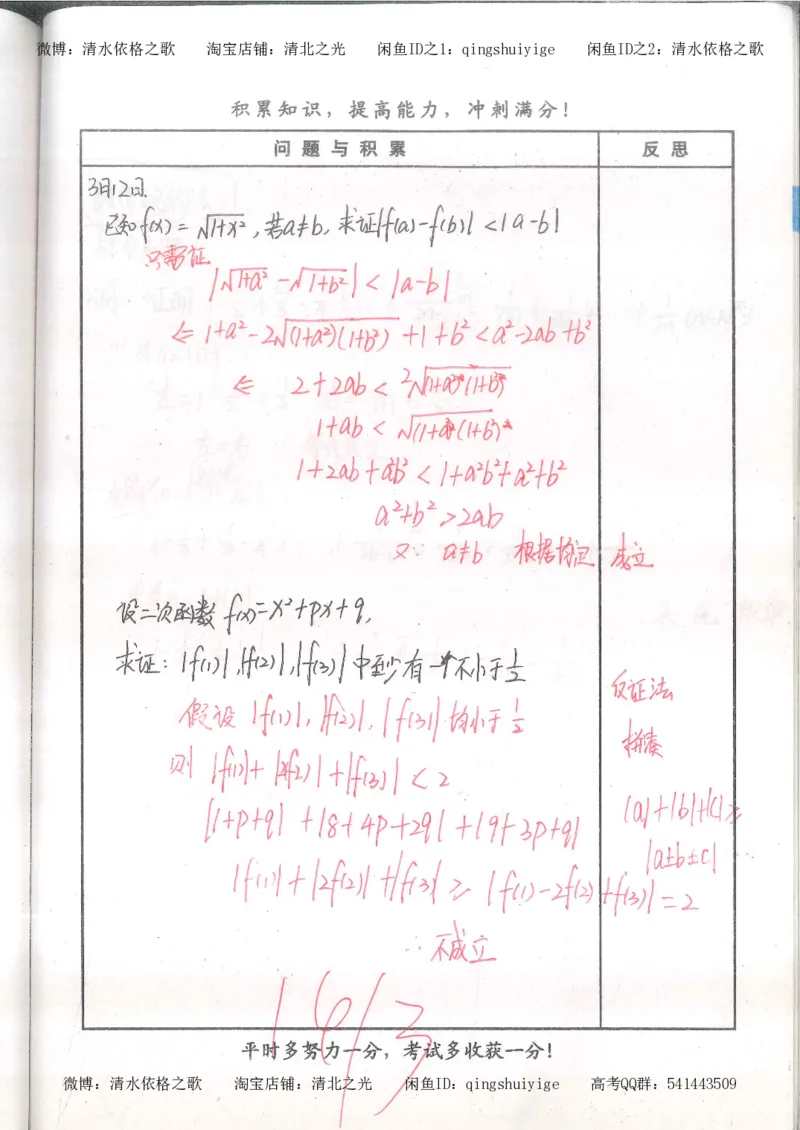 微博：清水依格之歌 淘宝店铺：清北之光 闲鱼ID之1：qingshuiyige 闲鱼ID之2：清水依格之歌
积累知识，提高能力，冲刺满分！
问题与积累 反思
3月12日.
已知f(x)=√(1+x²)，若a≠b，求证|f(a)-f(b)|<|a-b|
只需证
|√(1+a²)-√(1+b²)|<|a-b|
⇐ 1+a²-2√((1+a²)(1+b²))+1+b²<a²-2ab+b²
⇐ 2+2ab<2√((1+a²)(1+b²))
1+ab<√((1+a²)(1+b²))
1+2ab+a²b²<1+a²b²+a²+b²
a²+b²>2ab
又∵ a≠b 根据均定 成立
设二次函数f(x)=x²+px+q，
求证：|f(1)|,|f(2)|,|f(3)|中至少有一个不小于1/2
反证法
假设|f(1)|,|f(2)|,|f(3)|均小于1/2
拼凑
则|f(1)|+|2f(2)|+|f(3)|<2
|1+p+q|+|8+4p+2q|+|9+3p+q|
|a|+|b|+|c|≥
|a±b±c|…
|f(1)|+|2f(2)|+|f(3)|≥|f(1)-2f(2)+f(3)|=2
∴不成立
平时多努力一分，考试多收获一分！
微博：清水依格之歌 淘宝店铺：清北之光 闲鱼ID：qingshuiyige 高考QQ群：541443509